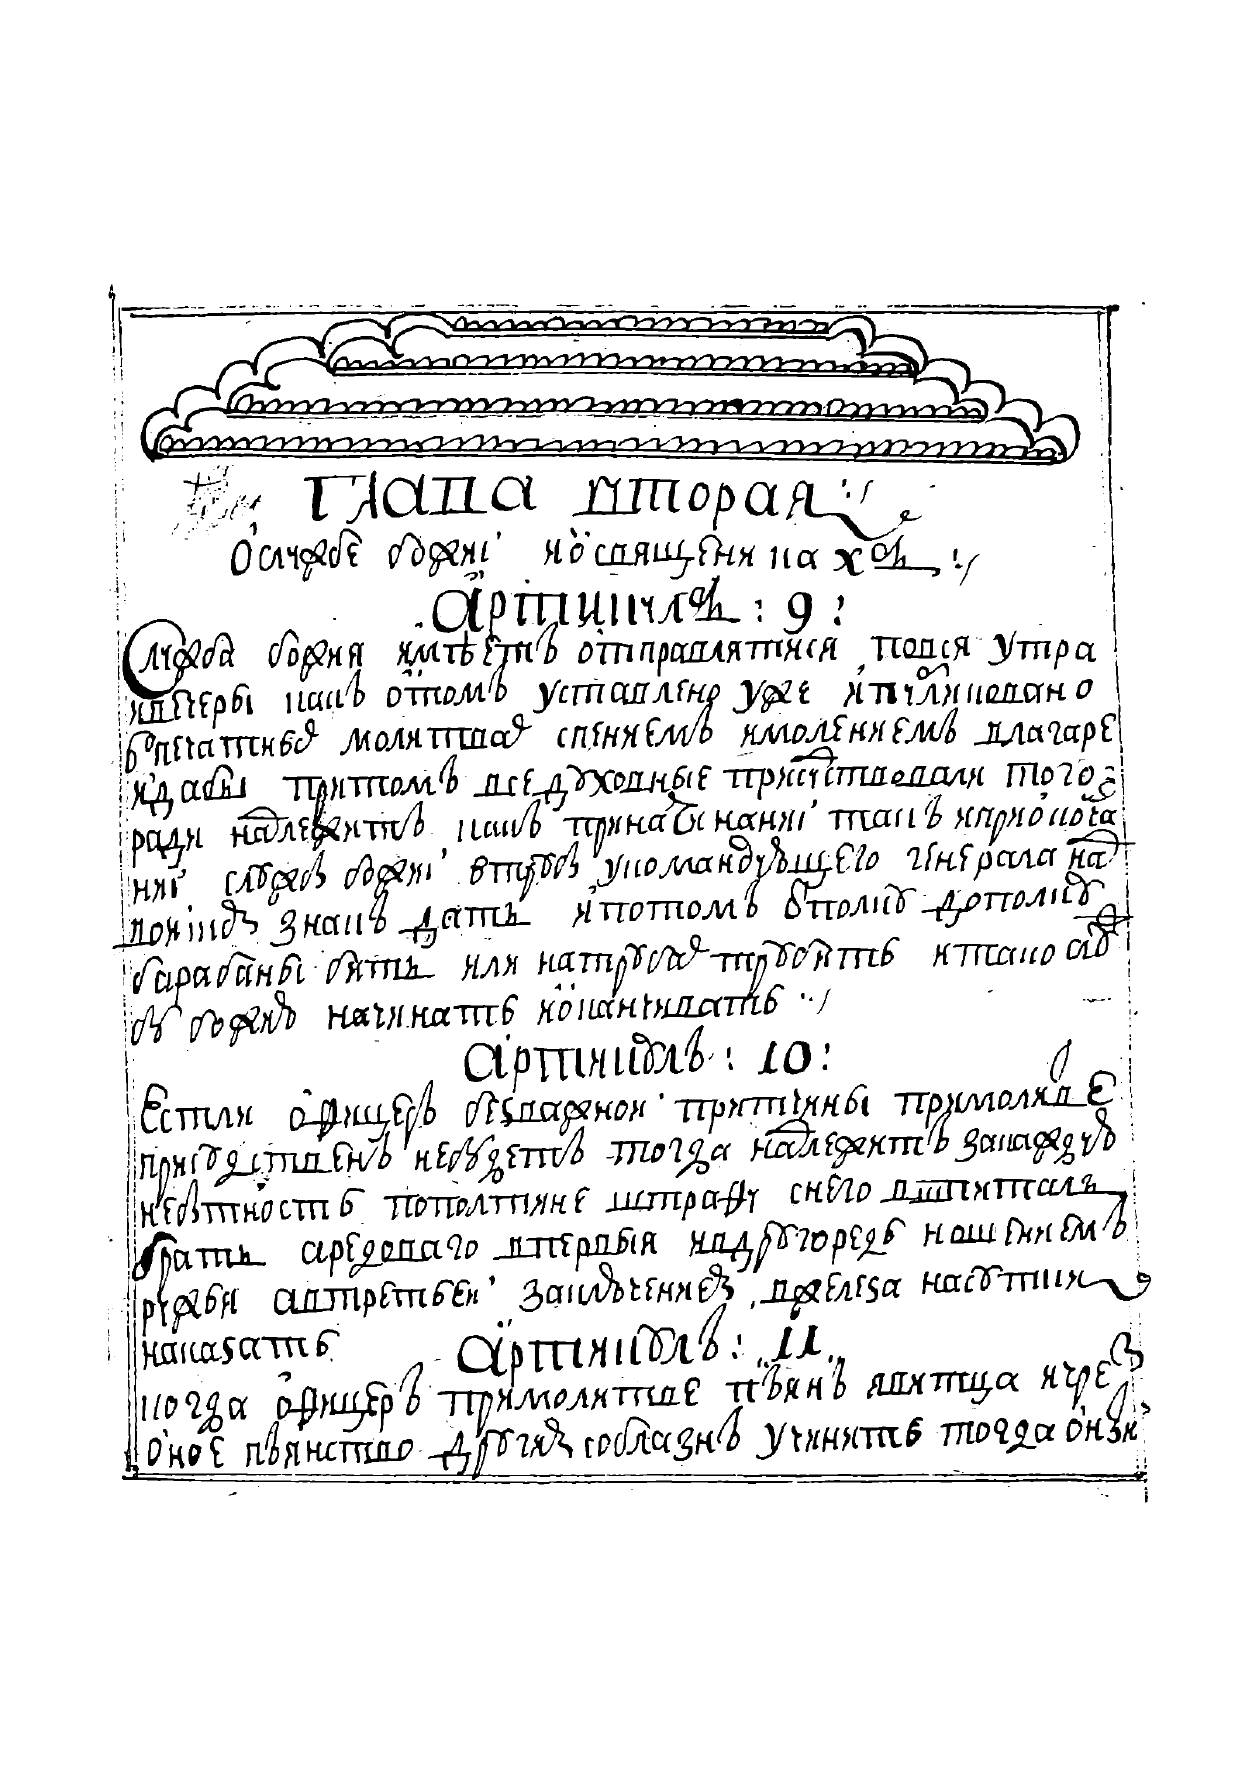 Глава вторая
О службе божиї и о священи на хъ
Артикулъ : 9 :
Служба божия имѣетъ отправлятися повся утра
и вечеры какъ о томъ уставлено уже и публиковано
въ печатнеи молитвав спениемъ имолениемъ влагаре
и дабы притомъ все духовные присутствовали того
ради надлежитъ какъ приначинаниї такъ и приокоча
ниї службъ божиї втрубъ у командующего генерала на
двоихъ знакъ дать и потомъ отполку дополку
барабаны бить или натрубах трубить итако служ
бу божию начинать и оканчивать
Артикулъ : 10 :
Естли офицеръ безважнои притчины примолитве
присудственъ небудетъ тогда надлежитъ закаждую
небытность пополтине штрафу снего вшпиталь
брать арядоваго впервыя идругорядь ношениемъ
ружья автретьеи заключениемъ вжелеза насутки
наказать
Артикулъ : 11
когда офицеръ примолитве пьянъ явитца ичрез
оное пьянство другим соблазнъ учинить тогда онъ и